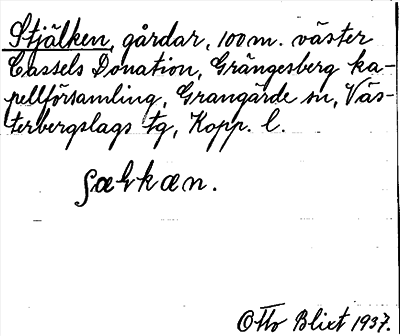 Stjälken, gårdar, 100 m. väster
Cassels Donation, Grängesberg ka-
pellförsamling, Grangärde sn, Väs-
terbergslags tg, Kopp. l.
Otto Blixt 1937.